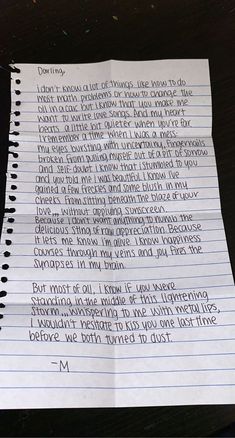 Darling,
i don't know a lot of things like how to do
most math problems or how to change the
oil in a car but I know that you make me
want to write love songs. And my heart
beats a little bit quieter when you're far.
I remember a time when I was a mess:
my eyes bursting with uncertainty, fingernails
broken from pulling myself out of a pit of sorrow
and self-doubt. I know that I stumbled to you
and you told me I was beautiful. I know I've
gained a few freckles and some blush in my
cheeks from sitting beneath the blaze of your
love,,, without applying sunscreen.
Because I don't want anything to numb the
delicious sting of raw appreciation. Because
it lets me know I'm alive. I know happiness
courses through my veins and joy fires the
synapses in my brain.
But most of all, i know if you were
standing in the middle of this lightening
storm,,, whispering to me with metal lips,
I wouldn't hesitate to kiss you one last time
before we both turned to dust.
-M